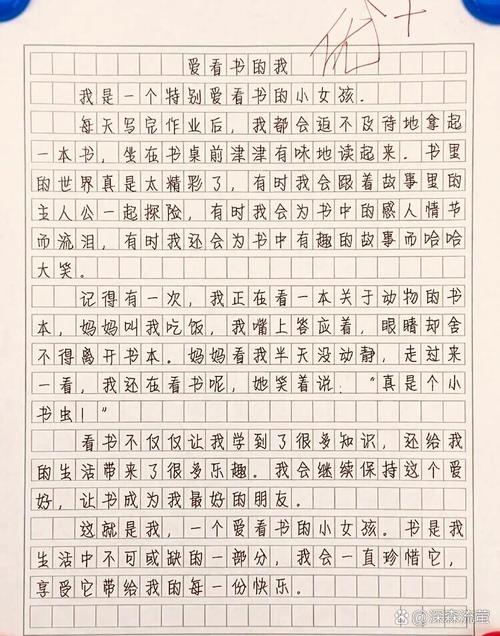 优+
爱看书的我
我是一个特别爱看书的小女孩.
每天写完作业后，我都会迫不及待地拿起
一本书，坐在书桌前津津有味地读起来.书里
的世界真是太精彩了，有时我会跟着故事里的
主人公一起探险，有时我会为书中的感人情节
而流泪，有时我还会为书中有趣的故事而哈哈
大笑。
记得有一次，我正在看一本关于动物的书
本，妈妈叫我吃饭，我嘴上答应着，眼睛却舍
不得离开书本。妈妈看我半天没动静，走过来
一看，我还在看书呢，她笑着说："真是个小
书虫！"
看书不仅仅让我学到了很多知识，还给我
的生活带来了很多乐趣。我会继续保持这个爱
好，让书成为我最好的朋友。
这就是我，一个爱看书的小女孩.书是我
生活中不可或缺的一部分，我会一直珍惜它，
享受它带给我的每一份快乐。
@深森流萤